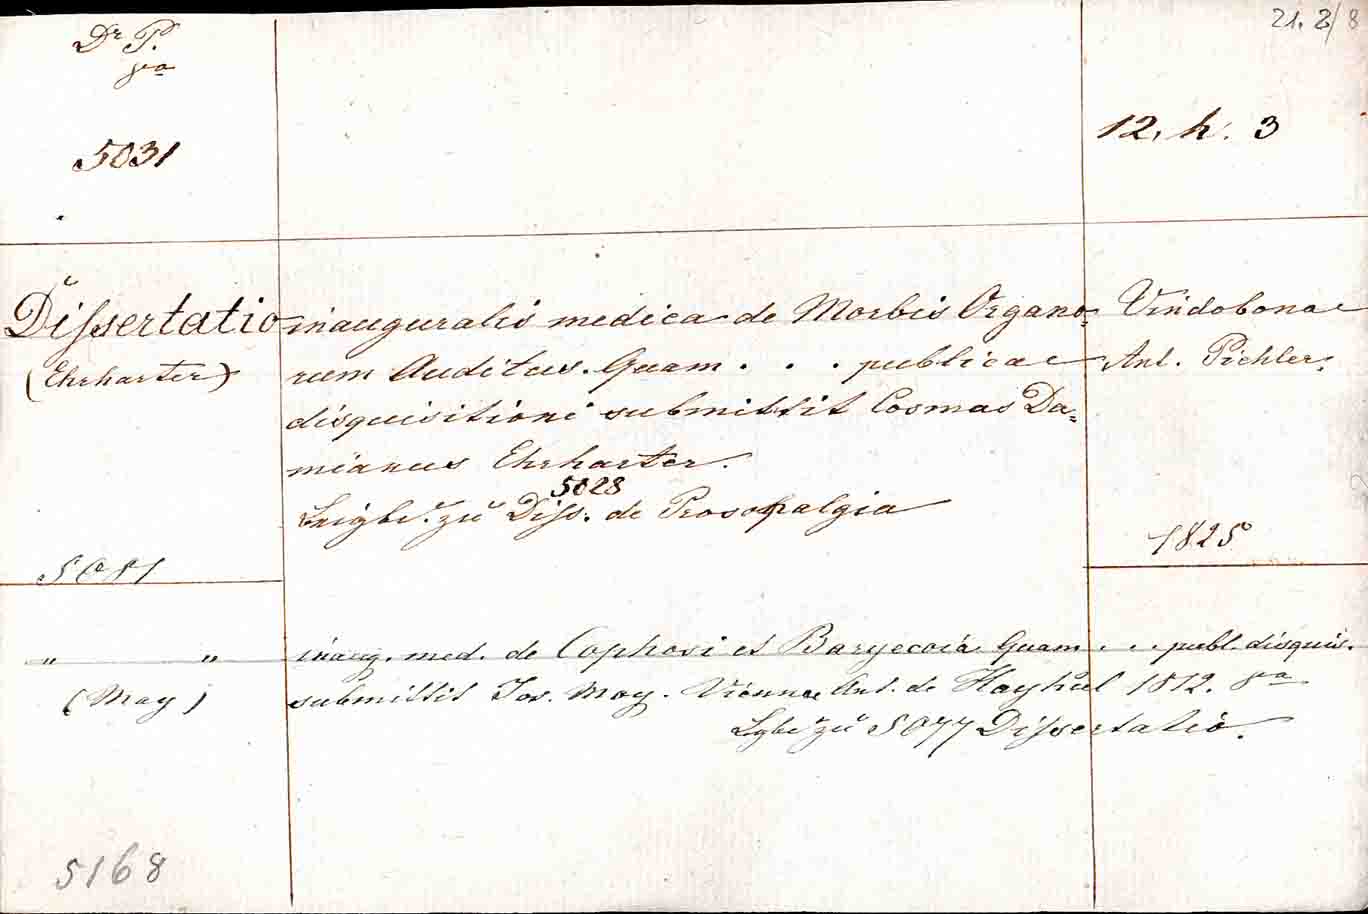 21. 2/8
Dr P.
8va
5031
12. h. 3
Dissertatio inauguralis medica de Morbis Organo= Vindobonae
(Ehrharter) rum Auditus. Quam . . . publicae Ant. Pichler.
disquisitioni submittit Cosmas Da=
mianus Ehrharter.
5028
zu Diss. de Prosopalgia
1825
5081
" " inaug. med. de Cophosi et Baryecoia. Quam . . . publ. disquis.
(May) submittit Jos. May. Viennae Ant. de Haykul 1812. 8va
zu 5077 Dissertatio.
5168